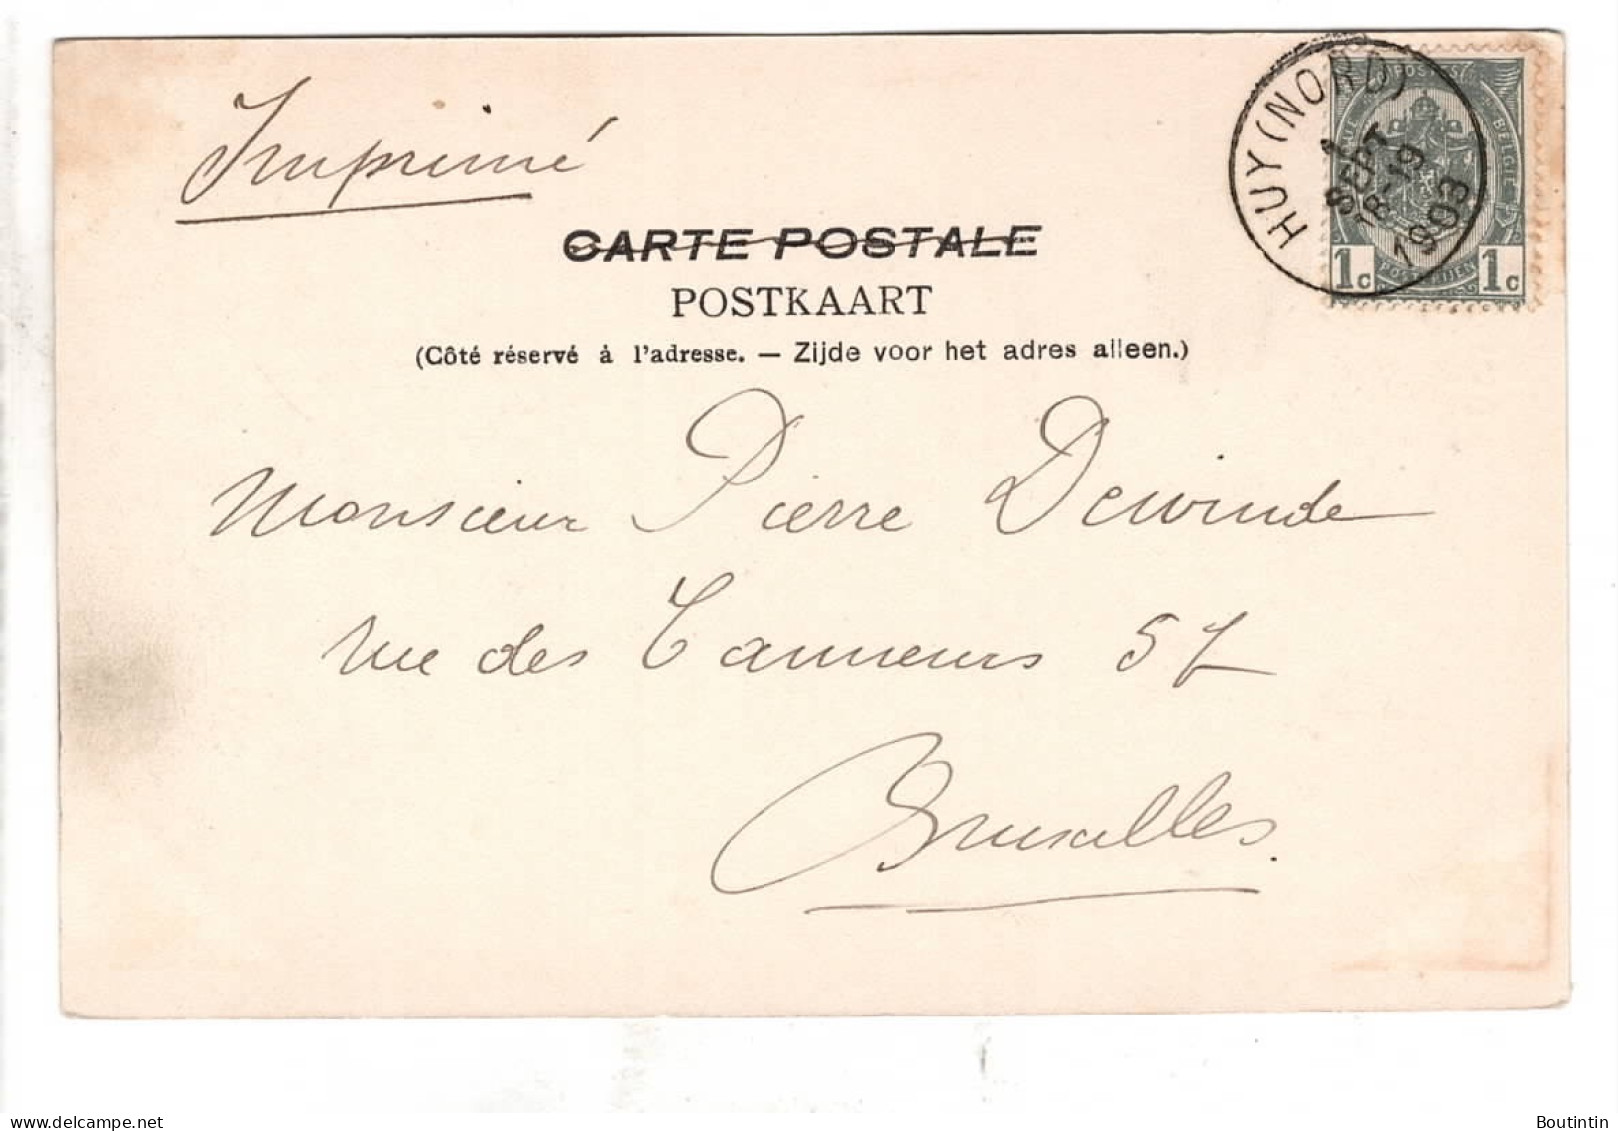 Imprimé
CARTE POSTALE
POSTKAART
(Côté réservé à l'adresse. — Zijde voor het adres alleen.)
HUY (NORD)
1
SEPT
18-19
1903
POSTES
BELGIE
POSTERIJEN
1c 1c
Monsieur Pierre Dewinde
rue des Tanneurs 57
Bruxelles.
delcampe.net
Boutintin